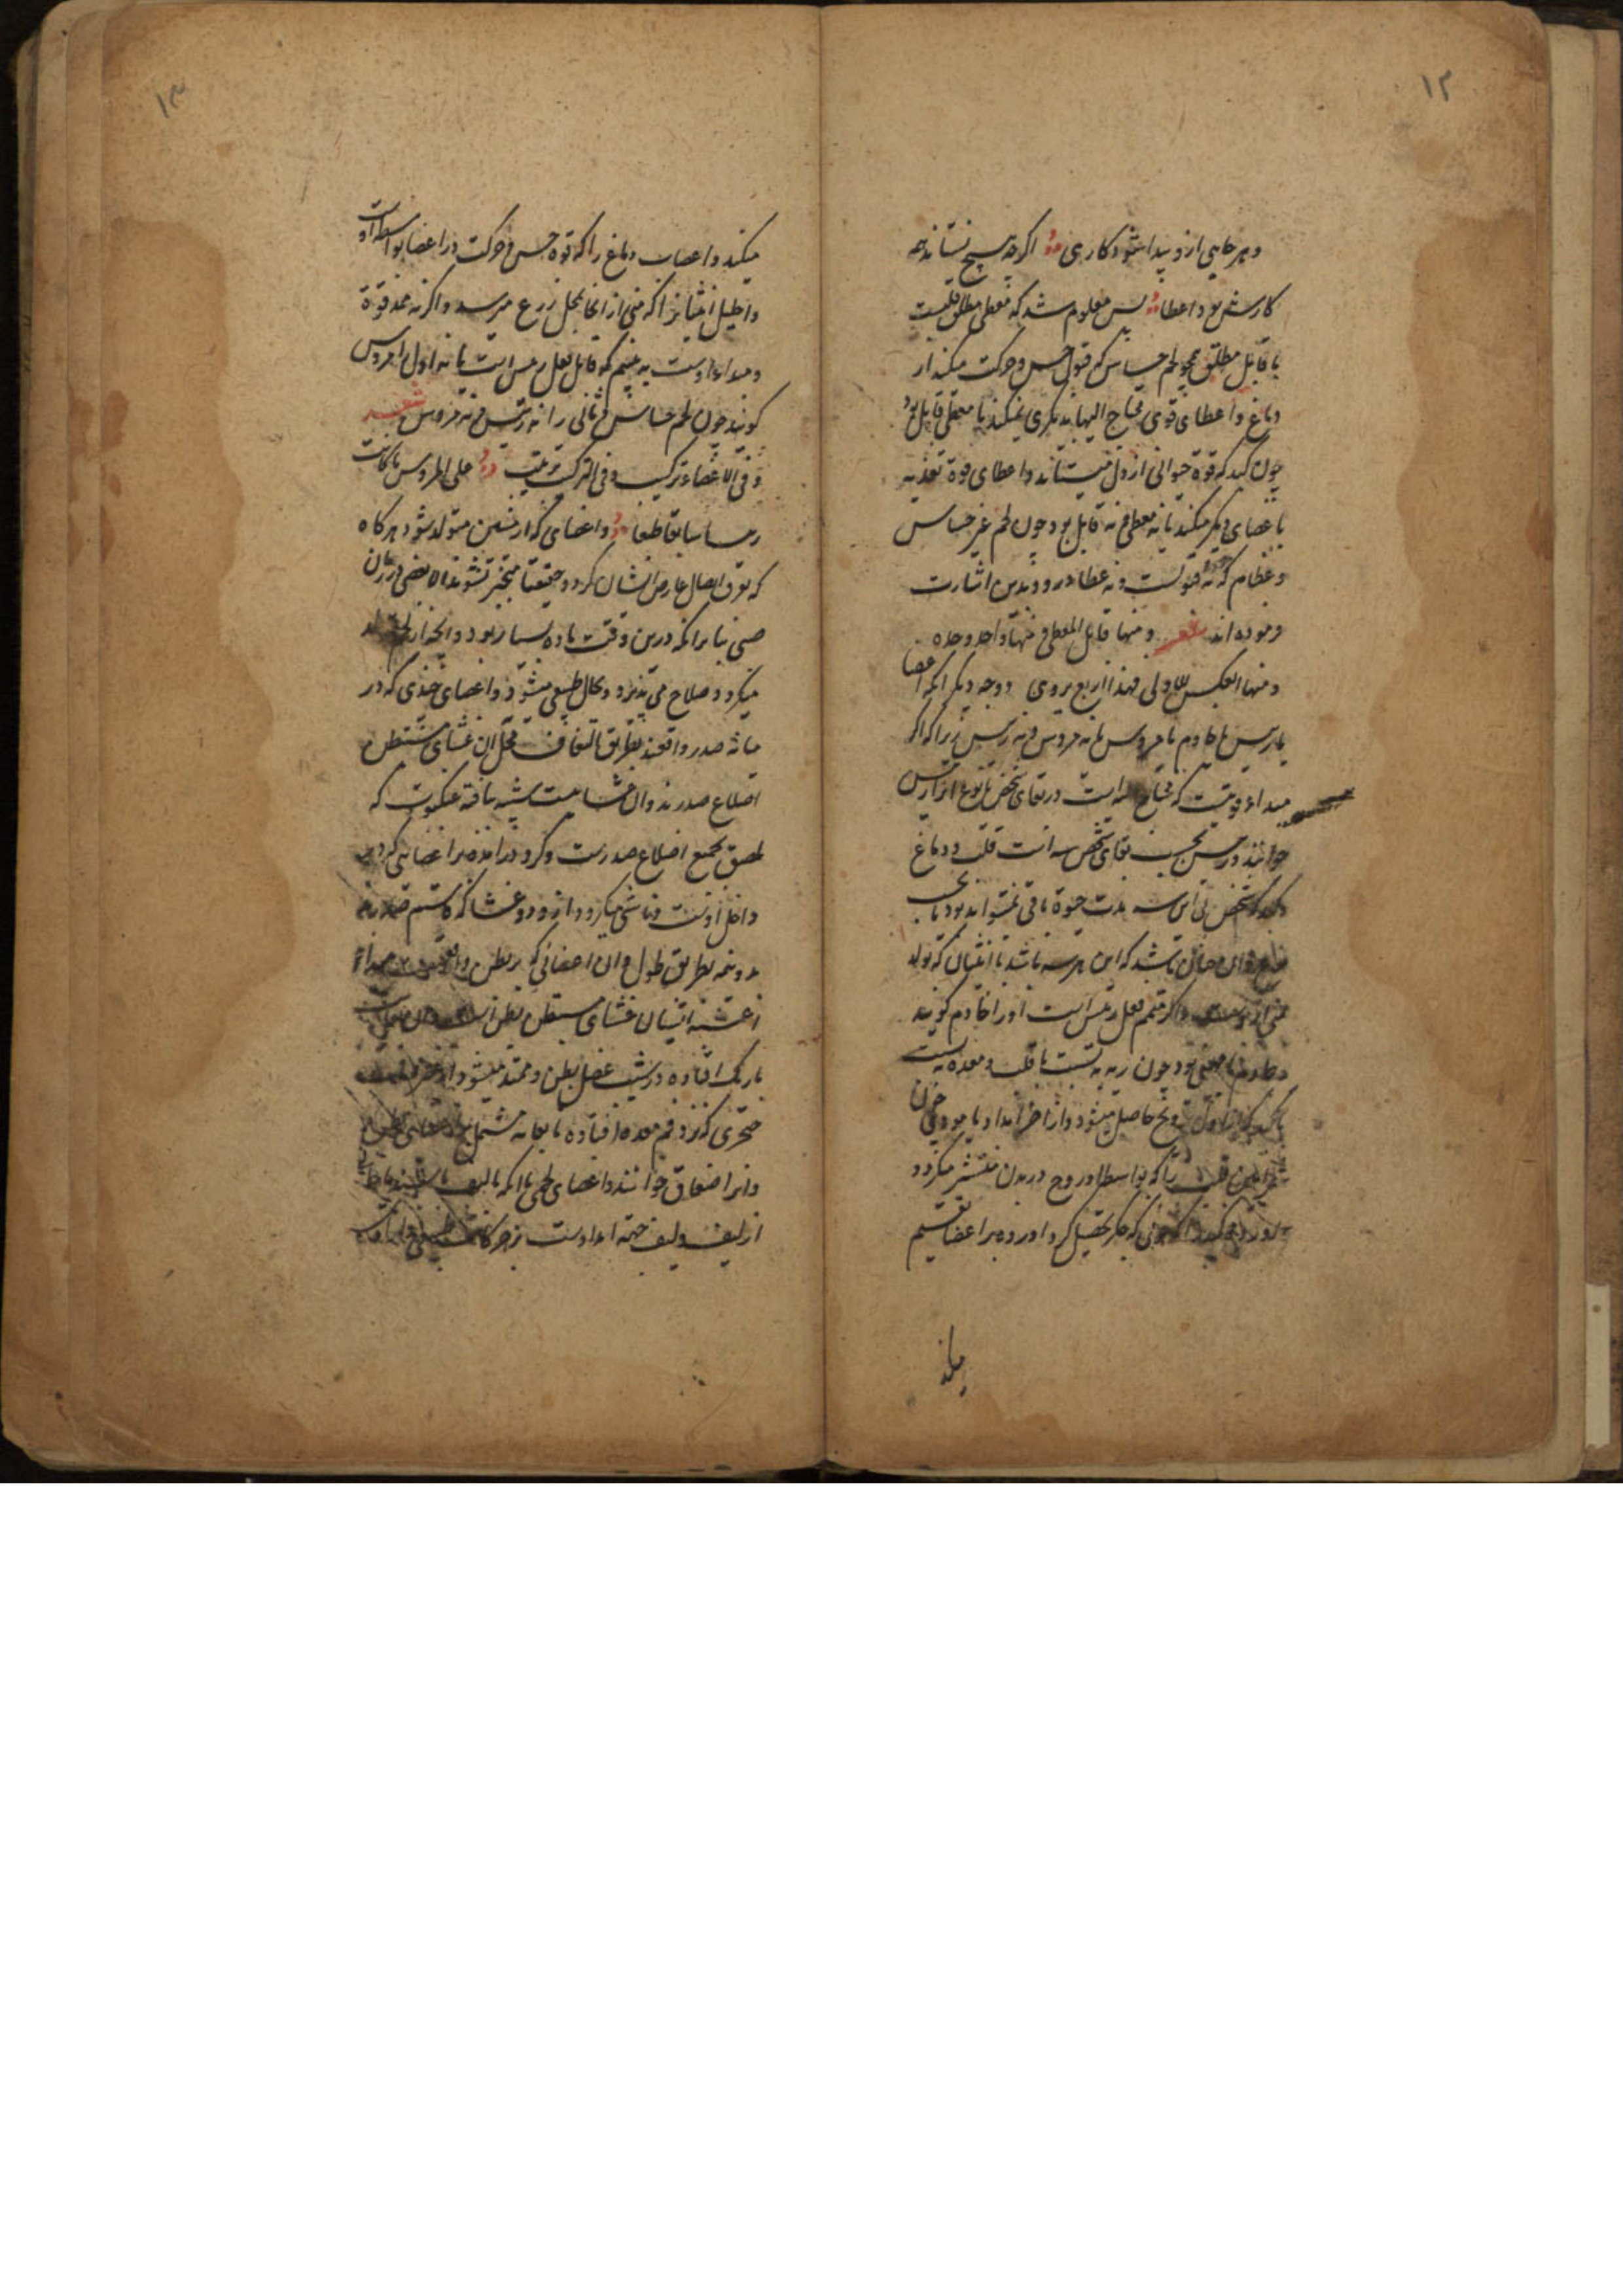 ۱۲
و هر جایی ازو پیدا شود کاری اگرچه هیچ نستاند چه
کارش بود اعطا پس معلوم شد که معطی مطلق قلبست
یا قابل مطلق چو لحم حساس که قبول حس و حرکت میکند از
دماغ و اعطای قوی محتاج الیها بدیگری نمیکند یا معطی قابل بود
چون کبد که قوة حیوانی از دل میستاند و اعطای قوة تغذیه
باعضای دیگر میکند یا نه معطی و نه قابل بود چون لحم غیر حساس
و عظام که نه قبولست و نه عطا درو و بدین اشارت
فرموده اند شعر و منها قابل المعطی و منها واحد وحده
و منها العکس للاولی فهذا اربع یروی و وجه دیگر آنکه اعضا
یا رئیس یا خادم یا مروس یا نه مروس و نه رئیس زیرا که اگر
مبداء قوتیست که محتاج الیه است در بقای شخص یا نوع آنرا رئیس
خوانند و رئیس بحسب بقای شخص سه است قلب و دماغ
و کبد که شخص بی این سه مدت حیوة باقی نمیتواند بود یا بحسب
نوع و این چنان باشد که این هر سه باشد با انثیان که تولد
منی ازوست و اگر متمم فعل رئیس است او را خادم گویند
و خادم یا مهیی بود چون ریه به نسبت با قلب و معده به نسبت
با کبد که از اول ترویح حاصل میشود و از آخر امداد یا مودی چون
شرایین قلب را که بواسطه او روح در بدن منتشر میگردد
و اورده کبد را که خونی که جگر تحصیل کرد اورده بر اعضا تقسیم
میکند
۱۳
میکند و اعصاب دماغ را که قوة حس و حرکت در اعضا بواسطه اوست
و احلیل انثیین را که منی از آنجا بمحل زرع میرسد و اگر نه ممد قوة
و مبداء اوست نه متمم که قابل فعل رئیس است یا نه اول را مروس
گویند چون لحم حساس و ثانی را نه رئیس و نه مروس شعر
و فی الاعضاء ترکیب و فی الترکیب ترتیب علی المروس ما کانت
رسا سابقا طبعا و اعضای که از منیین متولد شود هر گاه
که تفرق اتصال عارض ایشان گردد حقیقتا منجبر نشوند الا بعضی در زمان
صبی بنا بر آنکه درین وقت ماده بسیار بود و آنچه از لحم تولد
میگردد صلاح می پذیرد و بحال طبیعی میشود و اعضای حذی که در
میانه صدر واقعند بطریق التفاف محل آن غشای مستبطن
اضلاع صدر بود و آن غشاییست شبیه بافته عنکبوت که
ملصق بجمیع اضلاع صدرست و گرد در آمده بر اعضایی که در
داخل اوست و ناشی میگردد ازو دو غشا که قاسم صدر بود
بدو نیمه بطریق طول و آن اعضائی که بر بطن واقعست مبداء
اغشیه ایشان غشای مستبطن بطن است
باریک افتاده در شیب عضل بطن و ممتد میشود از
حنجری که نزد فم معده افتاده تا بعانه مشتمل بود
و آنرا صفاق خوانند و اعضای لحمی یا آنکه بالیف
از لیف و لیف خمیه امدادست در حرکات طبیعی